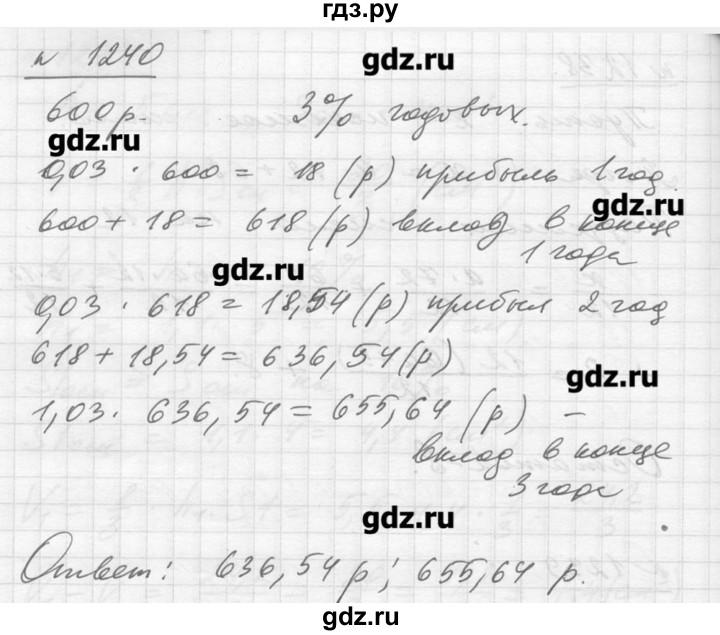 гдз.ру
№ 1240
gdz.ru
600р. 3% годовых.
gdz.ru
0,03 · 600 = 18 (р) прибыль 1 год.
gdz.ru
600 + 18 = 618 (р) вклад в конце
1 года
gdz.ru
0,03 · 618 = 18,54 (р) прибыл 2 год
618 + 18,54 = 636,54 (р)
gdz.ru
1,03 · 636,54 = 655,64 (р) –
вклад в конце
3 года
gdz.ru
Ответ: 636,54 р; 655,64 р.
gdz.ru